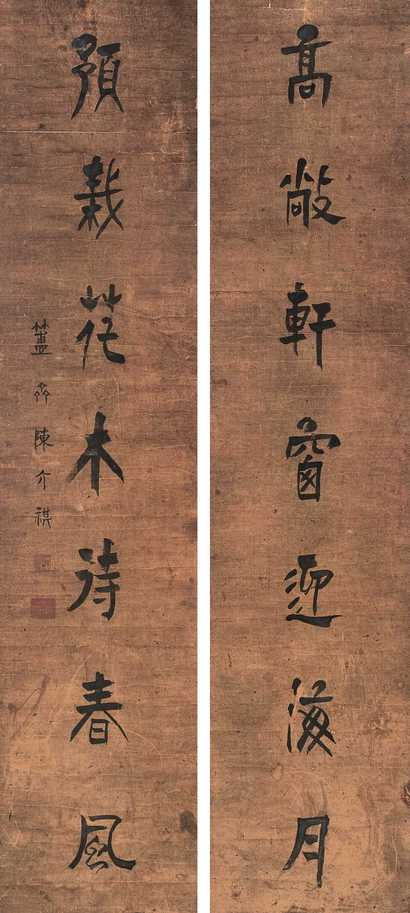 高敞軒窗迎海月
預栽花木待春風
簠齋陳介祺